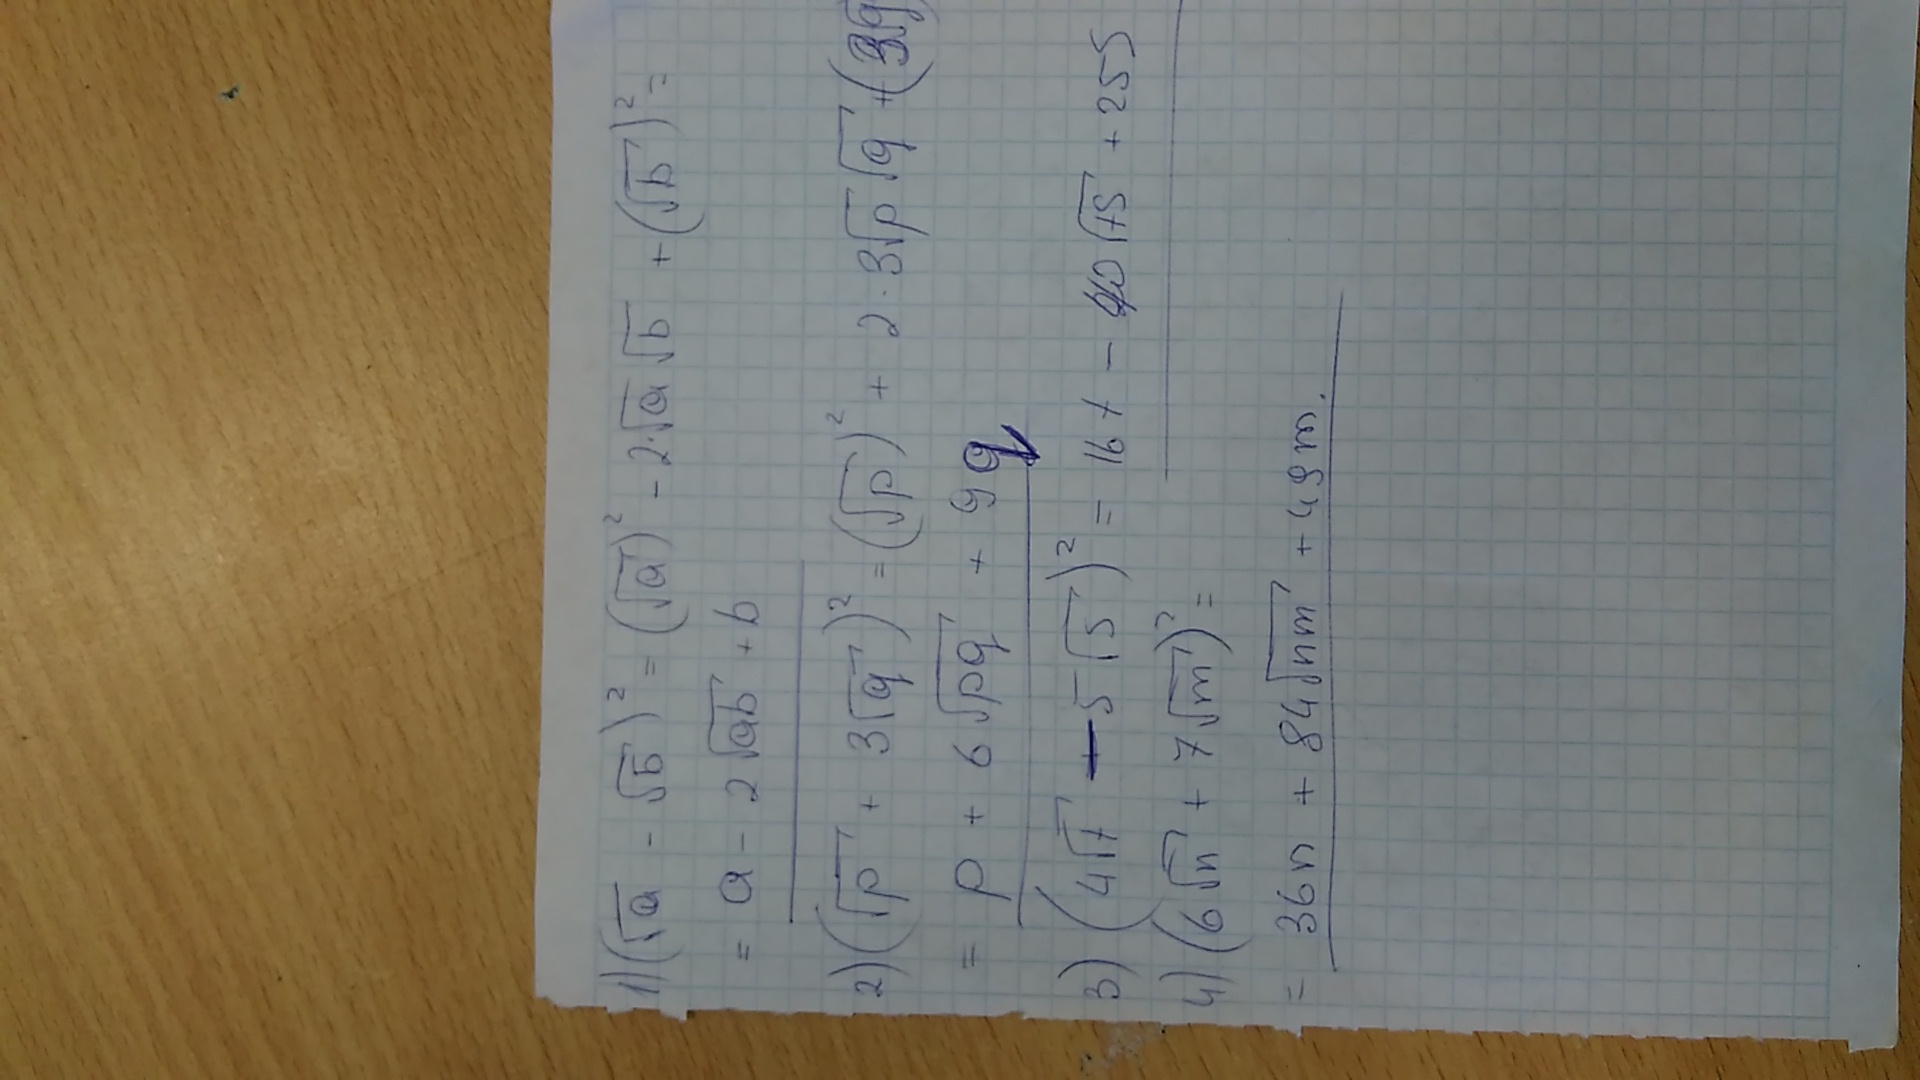 1) (√a - √b)² = (√a)² - 2·√a √b + (√b)² =
= a - 2√ab + b
2) (√p + 3√q)² = (√p)² + 2·3√p √q + (3√q
= p + 6√pq + 9q
3) (4√t - 5√s)² = 16t - 40√ts + 25s
4) (6√n + 7√m)² =
= 36n + 84√nm + 49m.